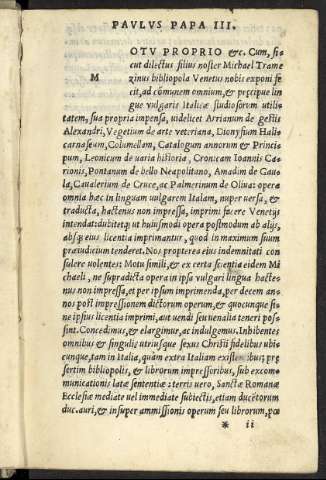 PAVLVS PAPA III.
M
OTV PROPRIO &c. Cum, si
cut dilectus filius noster Michael Trame
zinus bibliopola Venetus nobis exponi fe
cit, ad cōmunem omnium, & præcipue lin
guæ vulgaris Italicæ studiosorum utilita
tatem, sua propria inpensa, uidelicet Arrianum de gestis
Alexandri, Vegetium de arte veteriana, Dionysium Hali
carnaseum, Columellam, Catalogum annorum & Princi
pum, Leonicum de uaria historia, Cronicam Ioannis Ca
rionis, Pontanum de bello Neapolitano, Amadim de Gau
la, Caualerium de Cruce, ac Palmerinum de Oliua: opera
omnia hæc in linguam vulgarem Italam, nuper versa, &
traducta, hactenus non impressa, imprimi facere Venetijs
intendat: dubitetq; ut huiusmodi opera postmodum ab alijs,
absq; eius licentia imprimantur, quod in maximum suum
præiudicium tenderet. Nos propterea eius indemnitati con
sulere volentes: Motu simili, & ex certa scientia eidem Mi
chaeli, ne supradicta opera in ipsa vulgari lingua hacte
nus non impressa, et per ipsum imprimenda, per decem an
nos post impressionem dictorum operum, & quocunque si
ne ipsius licentia imprimi, aut uendi seu uenalia teneri pos
sint. Concedimus, & elargimur, ac indulgemus. Inhibentes
omnibus & singulis utriusque sexus Christi fidelibus ubi
cunque, tam in Italia, quàm extra Italiam existentibus; præ
sertim bibliopolis, & librorum impressoribus, sub excom
municationis latæ sententiæ: terris uero, Sanctæ Romanæ
Ecclesiæ mediate uel immediate subiectis, etiam ducētorum
duc. auri, & insuper ammissionis operum seu librorum, pœ
* ii